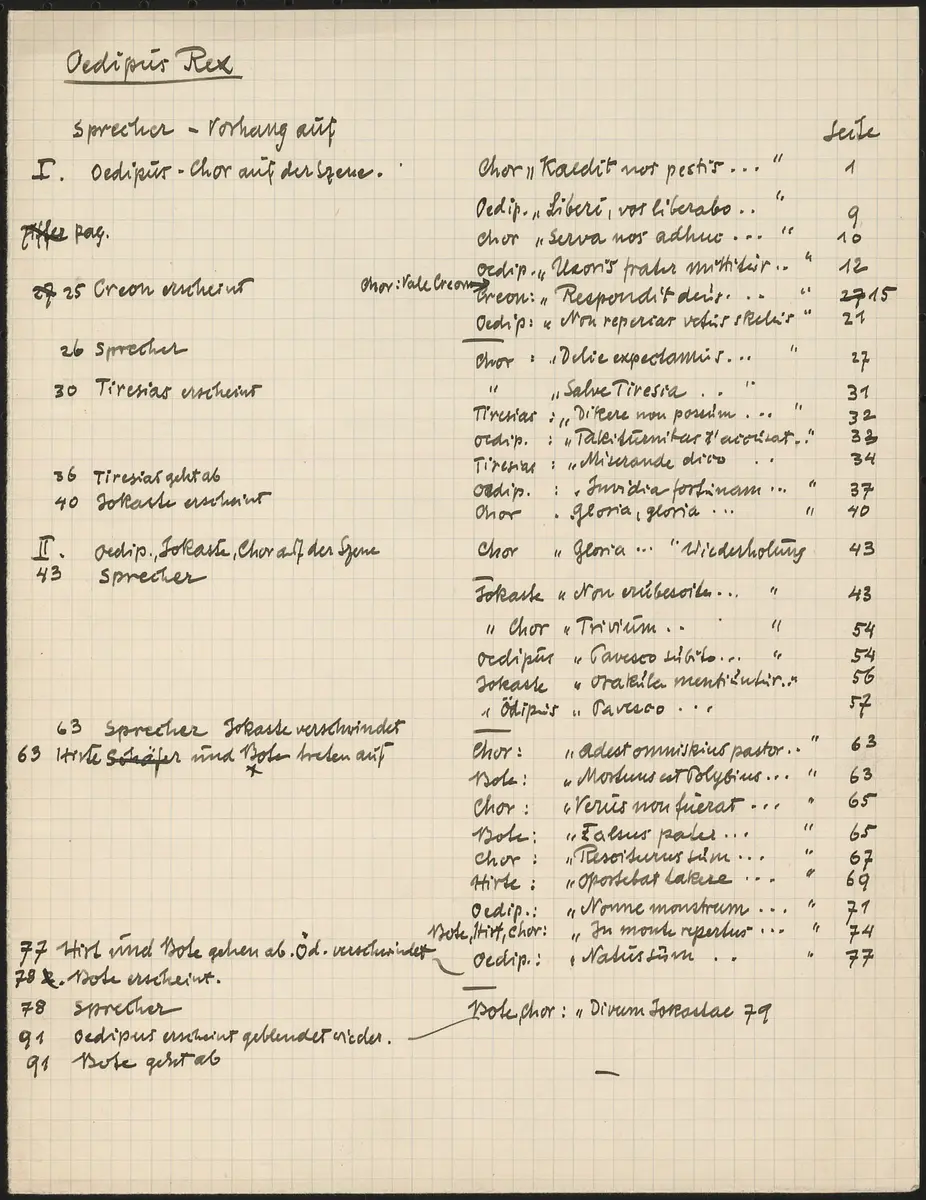 Oedipus Rex
Sprecher - Vorhang auf
Seite
I. Oedipus - Chor auf der Szene. Chor „Kaedit nos pestis ... " 1
Oedip. „Liberi, vos liberabo .. " 9
pag. Chor „Serva nos adhuc ... " 10
Oedip. „Uxoris frater mittitur .. " 12
27 25 Creon erscheint Chor: Vale Creon Creon: „Respondit deus. .. " 27 15
Oedip: „Non reperias vetus skelus " 21
26 Sprecher Chor : „Delie expectamus ... " 27
30 Tiresias erscheint " „Salve Tiresia . . " 31
Tiresias : „Dikere non possum ... " 32
Oedip. : „Takiturnitas t'accusat .. " 33
36 Tiresias geht ab Tiresias : „Miserande dico .. 34
40 Jokaste erscheint Oedip. : „Invidia fortunam ... " 37
Chor . „Gloria, gloria ... " 40
II. Oedip., Jokaste, Chor auf der Szene Chor „Gloria ... " Wiederholung 43
43 Sprecher
Jokaste „Non erubescite ... " 43
" Chor „Trivium .. " 54
Oedipus „Pavesco subito ... " 54
Jokaste „Orakula mentiuntur.. " 56
" Ödipus „Pavesco ... 57
63 Sprecher Jokaste verschwindet
63 Hirte Schäfer und Bote treten auf Chor: „Adest omniskius pastor .. " 63
Bote: „Mortuus est Polybius ... " 63
Chor: „Verus non fuerat ... " 65
Bote: „Falsus pater ... " 65
Chor: „Resciturus sum ... " 67
Hirte: „Oportebat takere ... " 69
Oedip.: „Nonne monstrum ... " 71
Bote, Hirt, Chor: „In monte repertus ... " 74
77 Hirt und Bote gehen ab. Öd. verschwindet Oedip.: „Natus sum .. " 77
78 Bote erscheint.
78 Sprecher Bote, Chor: „Divum Jokastae 79
91 Oedipus erscheint geblendet wieder.
91 Bote geht ab